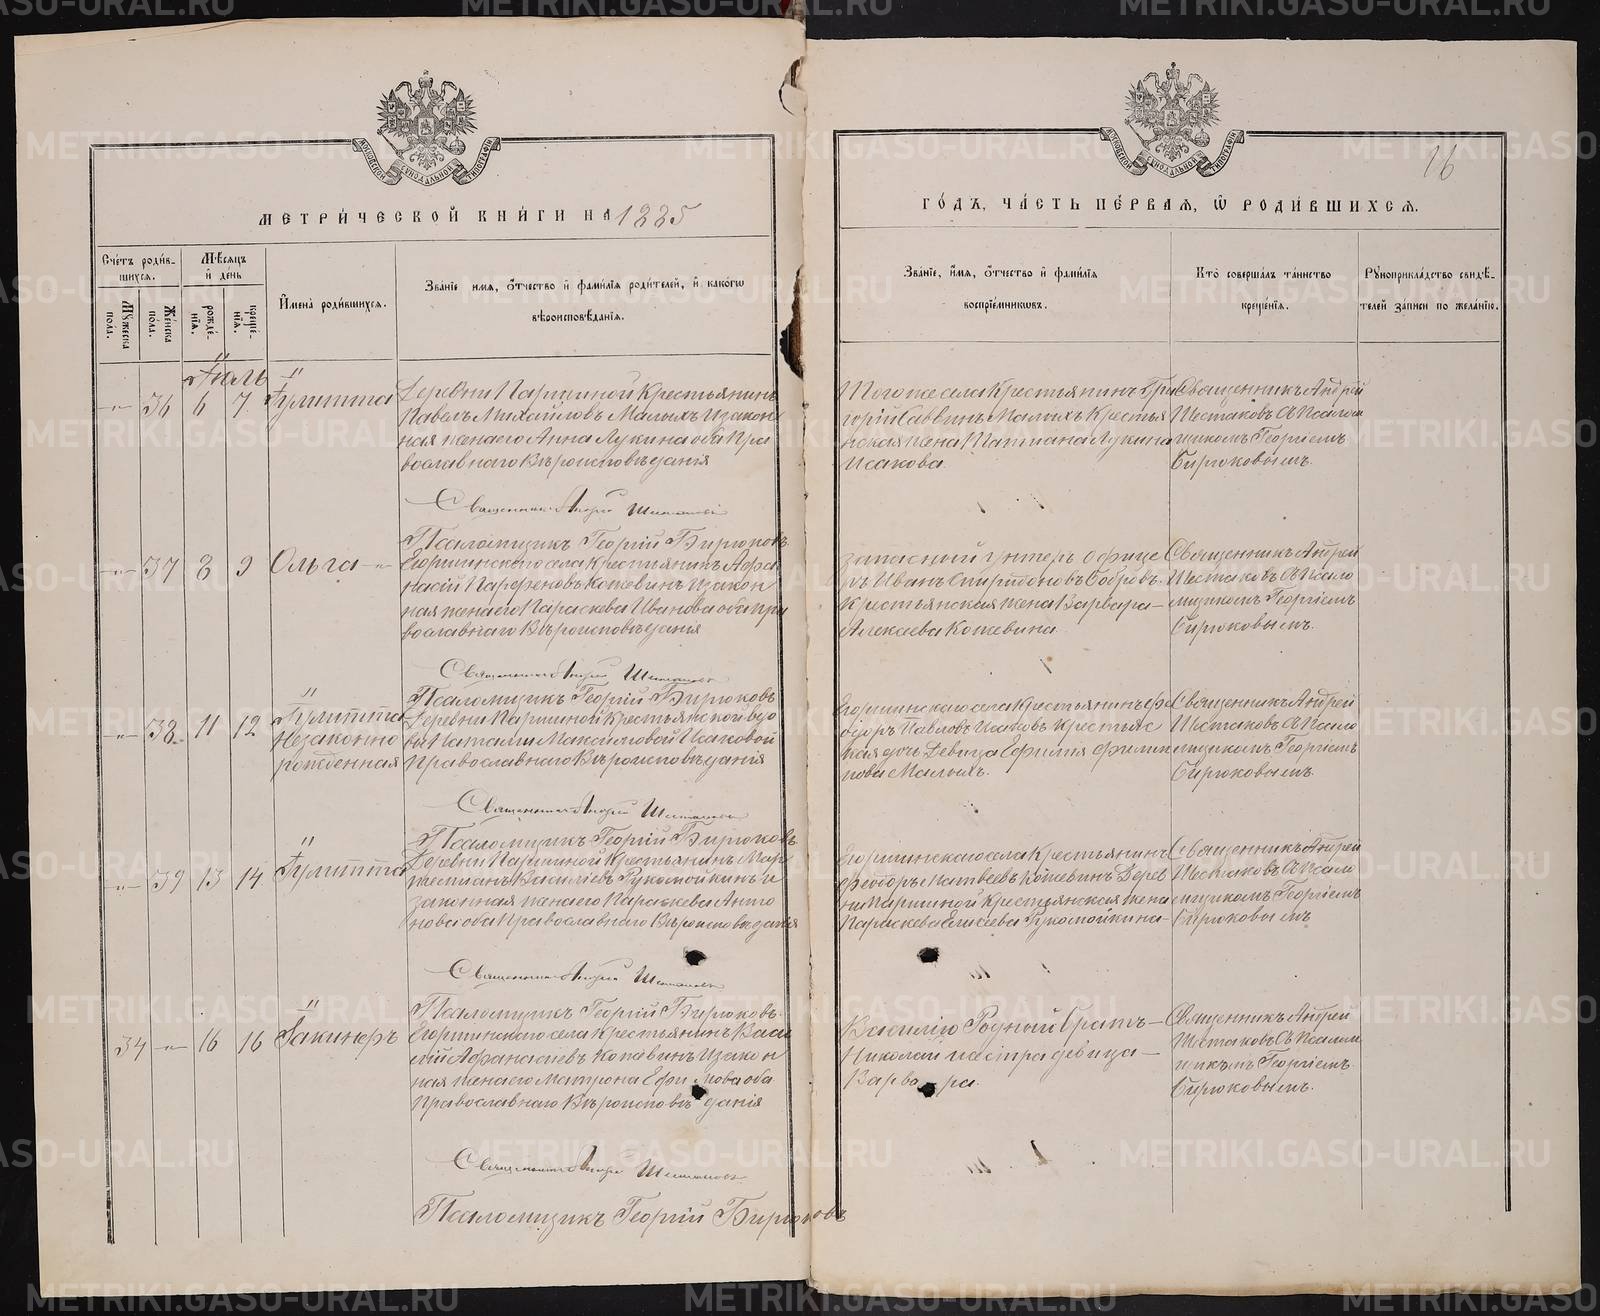 МЕТРИ́ЧЕСКОЙ КНИ́ГИ НА 1885
Сче́тъ роди́в-
шихся.
Мѣ́сяцъ
и҆ де́нь
Мꙋ́жеска
по́ла.
Же́нска
по́ла.
рожде́-
нїя.
креще́-
нїя.
И҆мена̀ роди́вшихся.
Зва́нїе и҆́мѧ, ѻ҆́тчество и҆ фами́лїѧ роди́телей, и҆ како́гѡ
вѣроисповѣ́данїѧ.
Іюль
36 6 7 Іулитта
Деревни Паршиной крестьянинъ
Павелъ Михайловъ Малыхъ и закон
ная жена его Анна Лукина оба пра
вославнаго Вѣроисповѣданія
Священникъ Андрей Шестаковъ
Псаломщикъ Георгій Бирюковъ
37 8 9 Ольга
Егоршинскаго села крестьянинъ Афа
насій Парфеновъ Кожевинъ и закон
ная жена его Параскева Иванова оба пра
вославнаго Вѣроисповѣданія
Священникъ Андрей Шестаковъ
Псаломщикъ Георгій Бирюковъ
38 11 12 Іулитта
незаконно
рожденная
Деревни Паршиной крестьянской вдо
вы Наталіи Максимовой Исаковой
Православнаго Вѣроисповѣданія
Священникъ Андрей Шестаковъ
Псаломщикъ Георгій Бирюковъ
39 13 14 Іулитта
Деревни Паршиной крестьянинъ Мар
Василіевъ Рукомойкинъ и
законная жена его Параскева Анто
нова оба Православнаго Вѣроисповѣданія
Священникъ Андрей Шестаковъ
Псаломщикъ Георгій Бирюковъ
34 16 16 Іакинѳъ
Егоршинскаго села крестьянинъ Васи
лій Афанасіевъ и закон
ная жена его Матрона Ефимова оба
Православнаго Вѣроисповѣданія
Священникъ Андрей Шестаковъ
Псаломщикъ Георгій Бирюковъ
16
ГО́ДЪ, ЧА́СТЬ ПЕ́РВАЯ, Ѽ РОДИ́ВШИХСЯ.
Зва́нїе, и҆́мѧ, ѻ҆́тчество и҆ фами́лїѧ
воспрїе́мникѡвъ.
Кто̀ соверша́лъ та́инство
креще́нїѧ.
Рꙋкоприкла́дство свидѣ́-
телей за́писи по жела́нїю.
Того же села Крестьянинъ Гри
горій Саввинъ Малыхъ Крестья
нская жена Татіана Лукина
Исакова.
Священникъ Андрей
Шестаковъ съ Псалом
щикомъ Георгіемъ
Бирюковымъ.
Запасный Унтеръ Офице
ръ Иванъ Спиридоновъ Бобровъ.
Крестьянская жена Варвара
Алексеева Кожевина.
Священникъ Андрей
Шестаковъ съ Псало
мщикомъ Георгіемъ
Бирюковымъ.
Егоршинскаго села Крестьянинъ Фе
одоръ Павловъ Исаковъ крестьянс
кая дочь девица Ефимія Филип
пова Малыхъ.
Священникъ Андрей
Шестаковъ съ Псало
мщикомъ Георгіемъ
Бирюковымъ.
Егоршинскаго села Крестьянинъ
Феодоръ Матвеевъ Кожевинъ Дерев
ни Паршиной крестьянская жена
Параскева Елисеева Рукомойкина
Священникъ Андрей
Шестаковъ съ Псало
мщикомъ Георгіемъ
Бирюковымъ
Василію Родный братъ
Николай и сестра девица
Варвара.
Священникъ Андрей
Шестаковъ съ Псалом
щикомъ Георгіемъ
Бирюковымъ.
METRIKI.GASO-URAL.RU